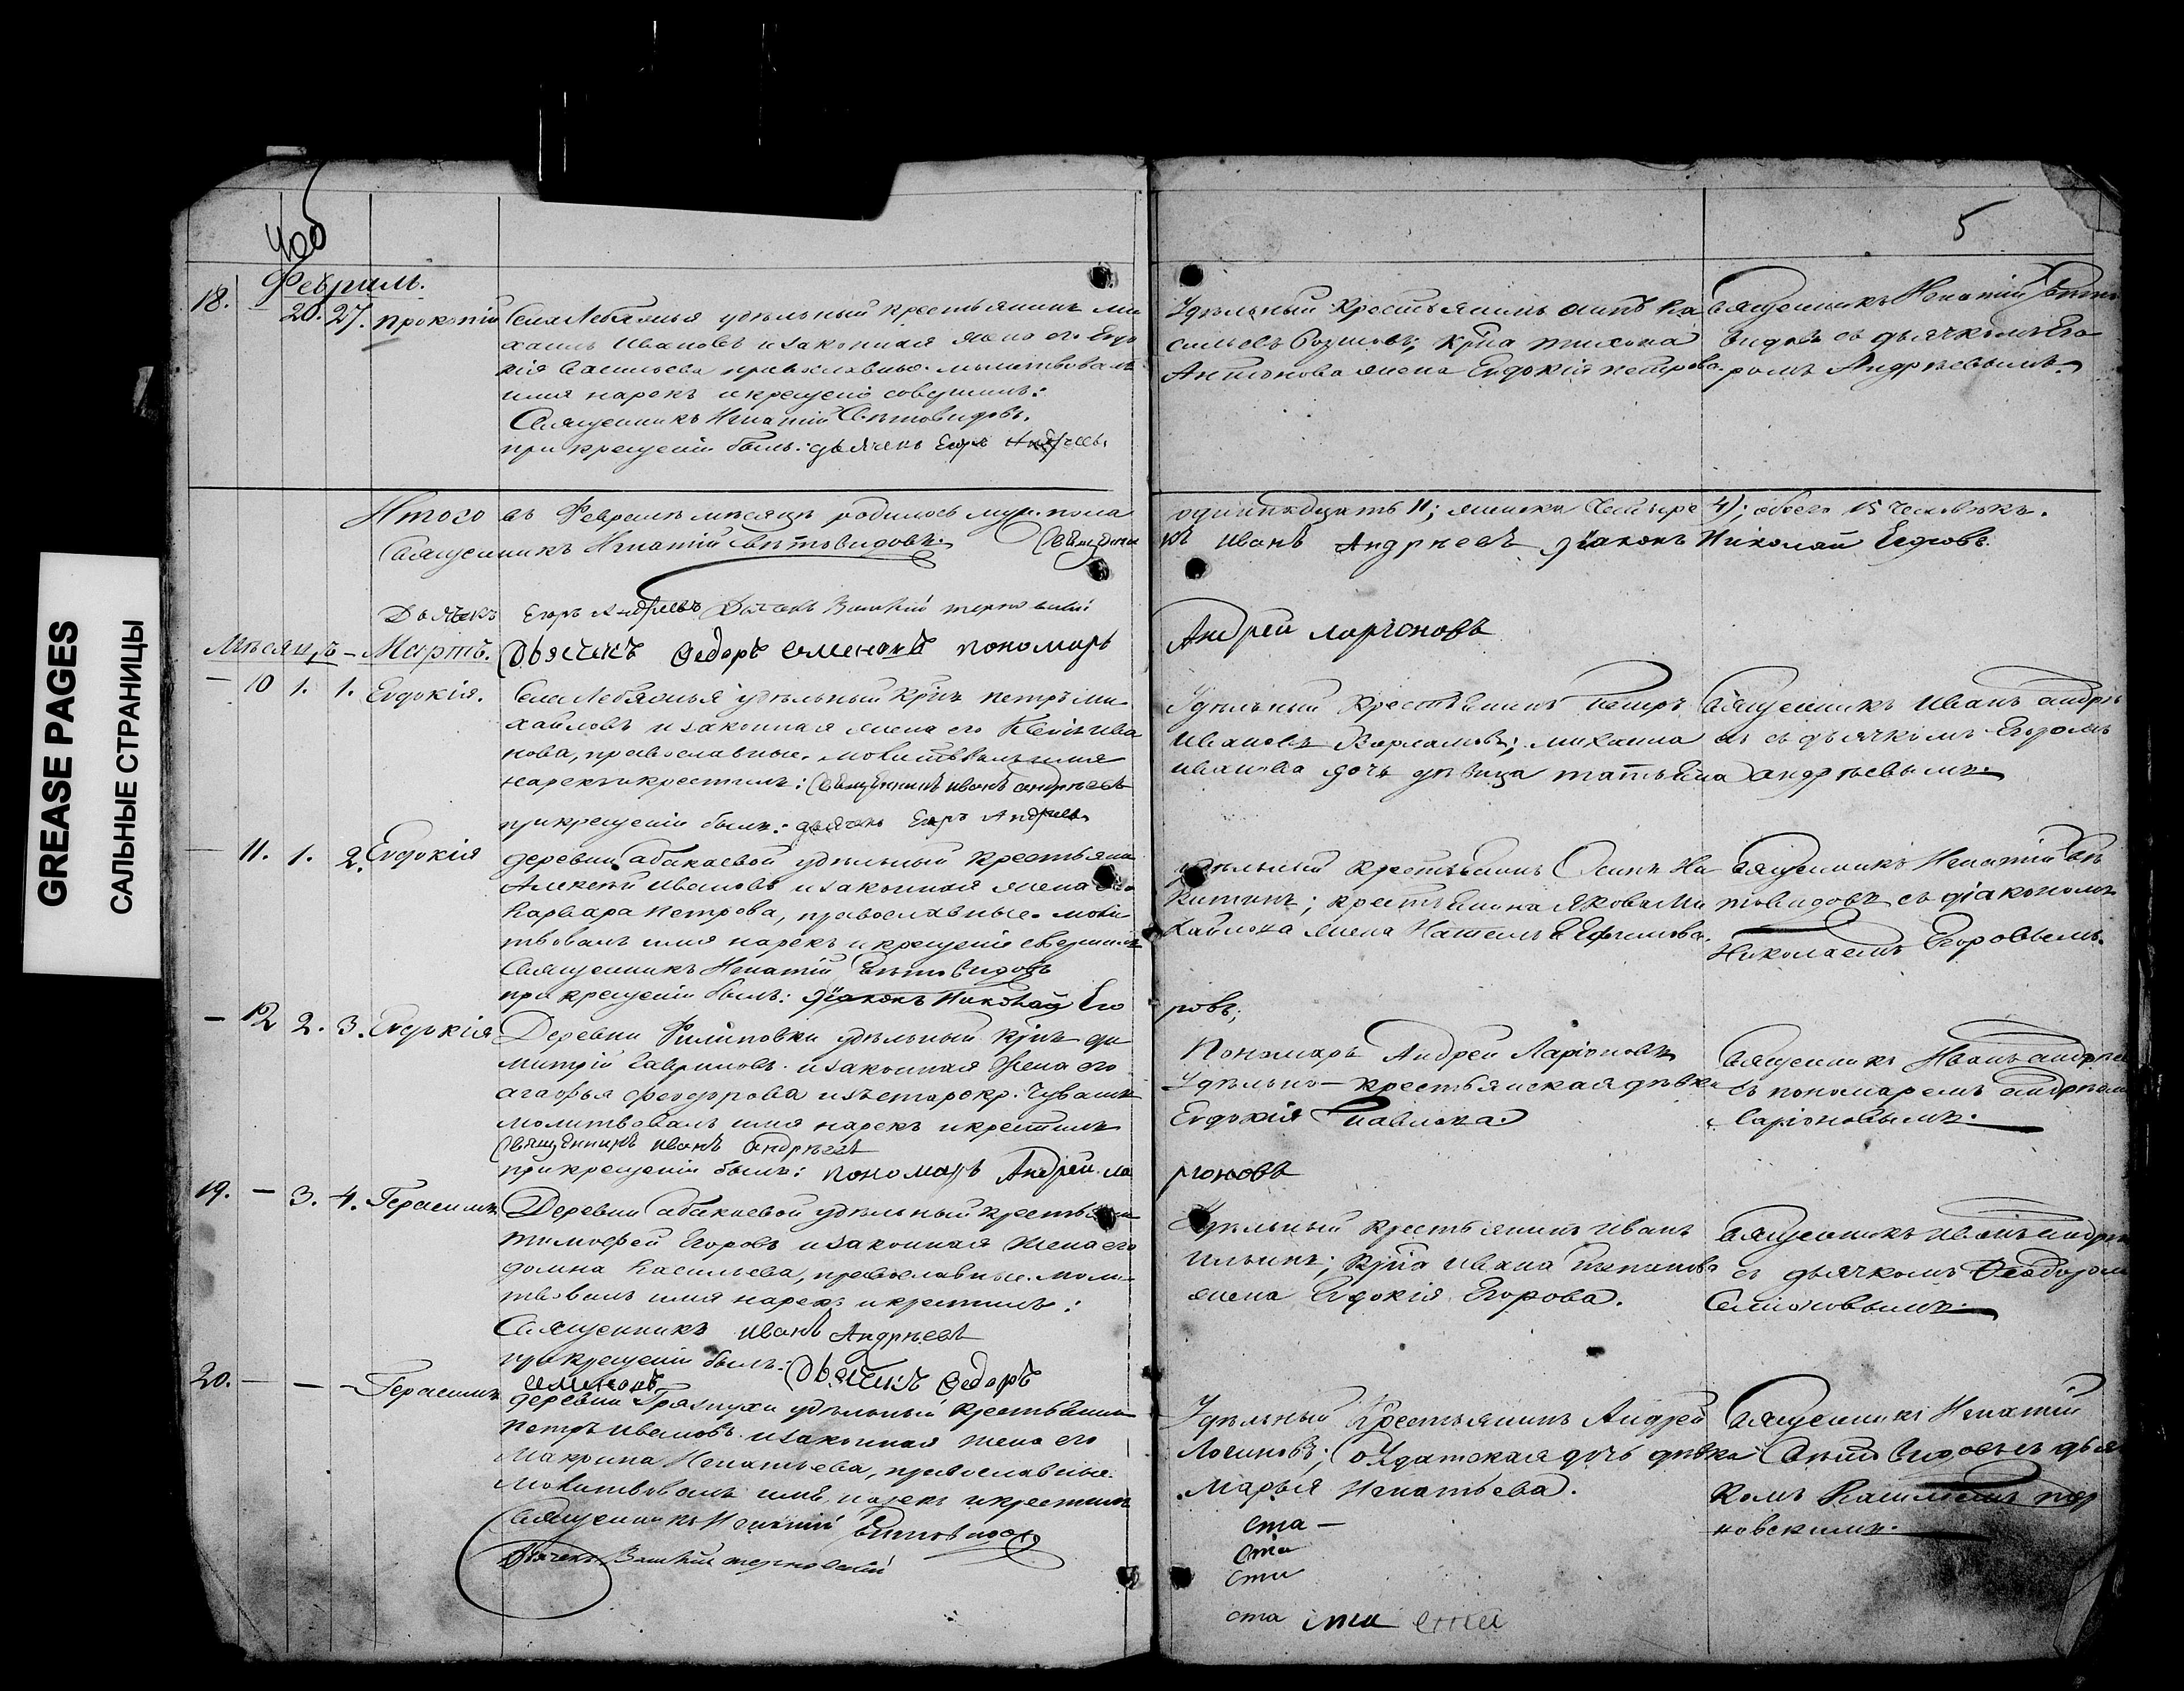 GREASE PAGES
САЛЬНЫЕ СТРАНИЦЫ
5
Февраль.
18. 20. 27. Прокопій
Села Лебяжья удѣльный крестьянинъ Ми
хаилъ Ивановъ и законная жена его Евдо
кія Васильева православные. молитвовалъ
имя нарекъ и крещеніе совершилъ:
Священникъ Игнатій Свѣтовидовъ.
при крещеніи былъ: дьячекъ Егоръ Андреевъ
Удѣльный крестьянинъ
Антонова жена Евдокія Петрова.
Священникъ Игнатій Свѣто
видовъ съ дьячкомъ Его
ромъ Андреевымъ.
Итого въ Февралѣ мѣсяцѣ родилось муж. пола
одиннадцать 11; женска четыре 4); обоего 15 человѣкъ.
Священникъ Игнатій Свѣтовидовъ. Священни
къ Иванъ Андреевъ Діаконъ Николай Егоровъ.
Дьячекъ Егоръ Андреевъ Дьячекъ
Мѣсяцъ – Мартъ. Дьячекъ Ѳедоръ Семеновъ пономарь
Андрей Ларіоновъ
— 10 1. 1. Евдокія.
Села Лебяжья удѣльный кр-нъ Петръ Ми
хайловъ и законная жена его
нова, православные. молитвовалъ имя
нарекъ и крестилъ: Священникъ Иванъ Андреевъ
при крещеніи былъ: дьячекъ Егоръ Андреевъ
Удѣльный крестьянинъ Петръ
Ивановъ Варламовъ; Михаила
Иванова дочь дѣвица Татьяна
Священникъ Иванъ Андрѣе
въ съ дьячкомъ Егоромъ
Андреевымъ.
— 11. 1. 2. Евдокія
деревни Абакаевой удѣльный крестьяни
Алексѣй Ивановъ и законная жена его
Варвара Петрова, православные. моли
твовалъ имя нарекъ и крещеніе совершилъ
Священникъ Игнатій Свѣтовидовъ
при крещеніи былъ: Діаконъ Николай Его
ровъ;
удѣльный крестьянинъ Осипъ Ни
китинъ; крестьянина Якова Ми
хайлова жена Ефимова.
Священникъ Игнатій Свѣ
товидовъ съ діакономъ
Николаемъ Егоровымъ.
— 12 2. 3. Евдокія
Деревни Филиповки удѣльный кр-нъ Ди
митрій Гавриловъ и законная жена его
Агафья Феодорова изъ старокр. Чувашъ
молитвовалъ имя нарекъ и крестилъ
Священникъ Иванъ Андреевъ
при крещеніи былъ: пономарь Андрей Ла
ріоновъ
Пономарь Андрей Ларіоновъ
Удѣльно-крестьянская дѣвка
Евдокія Павлова.
Священникъ Иванъ Андрее
съ пономаремъ Андреемъ
Ларіоновымъ.
19. — 3. 4. Герасимъ
Деревни Абакаевой удѣльный крестьяни
Тимофей Егоровъ и законная жена его
Домна Васильева, православные. моли
твовалъ имя нарекъ и крестилъ:
Священникъ Иванъ Андреевъ
при крещеніи былъ: Дьячекъ Ѳедоръ
Семеновъ
Удѣльный крестьянинъ Иванъ
Ильинъ; кр-на Ивана Степанова
жена Евдокія Егорова.
Священникъ Иванъ Андрее
съ дьячкомъ Ѳеодоромъ
Семеновымъ.
20. — — – Герасимъ
деревни Грязнухи удѣльный крестьянинъ
Петръ Ивановъ и законная жена его
Макрина Игнатьева, православные.
Молитвовалъ имя нарекъ и крестилъ
Священникъ Игнатій Свѣтовидовъ
Дьячекъ
Удѣльный Крестьянинъ Андрей
Логиновъ; Солдатская дочь дѣвка
Марья Игнатьева.
Священникъ Игнатій
Свѣтовидовъ съ дья
комъ
новскимъ.
ста –
ста
ста
ста ста ста